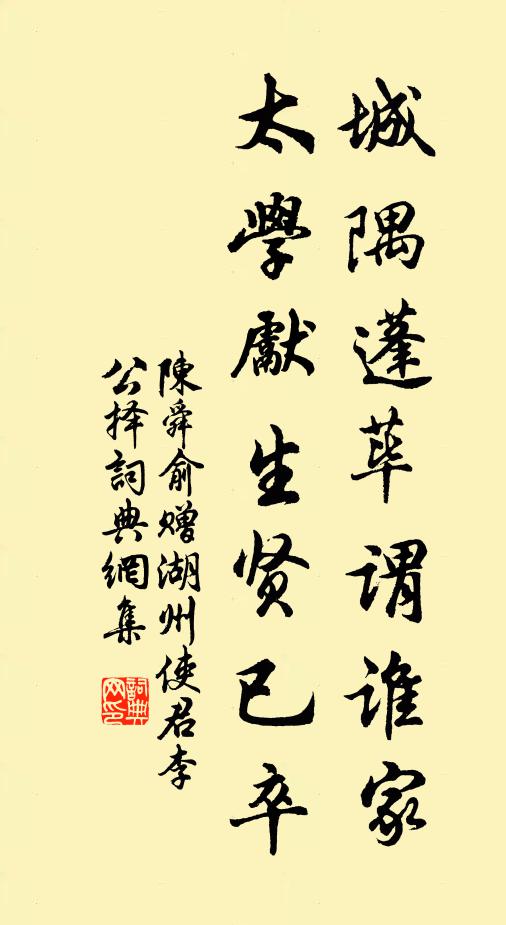 城隅蓬荜谓谁家
太學獻生贤已卒
陳舜俞赠湖州使君李
公择詞典網集
詞典网印